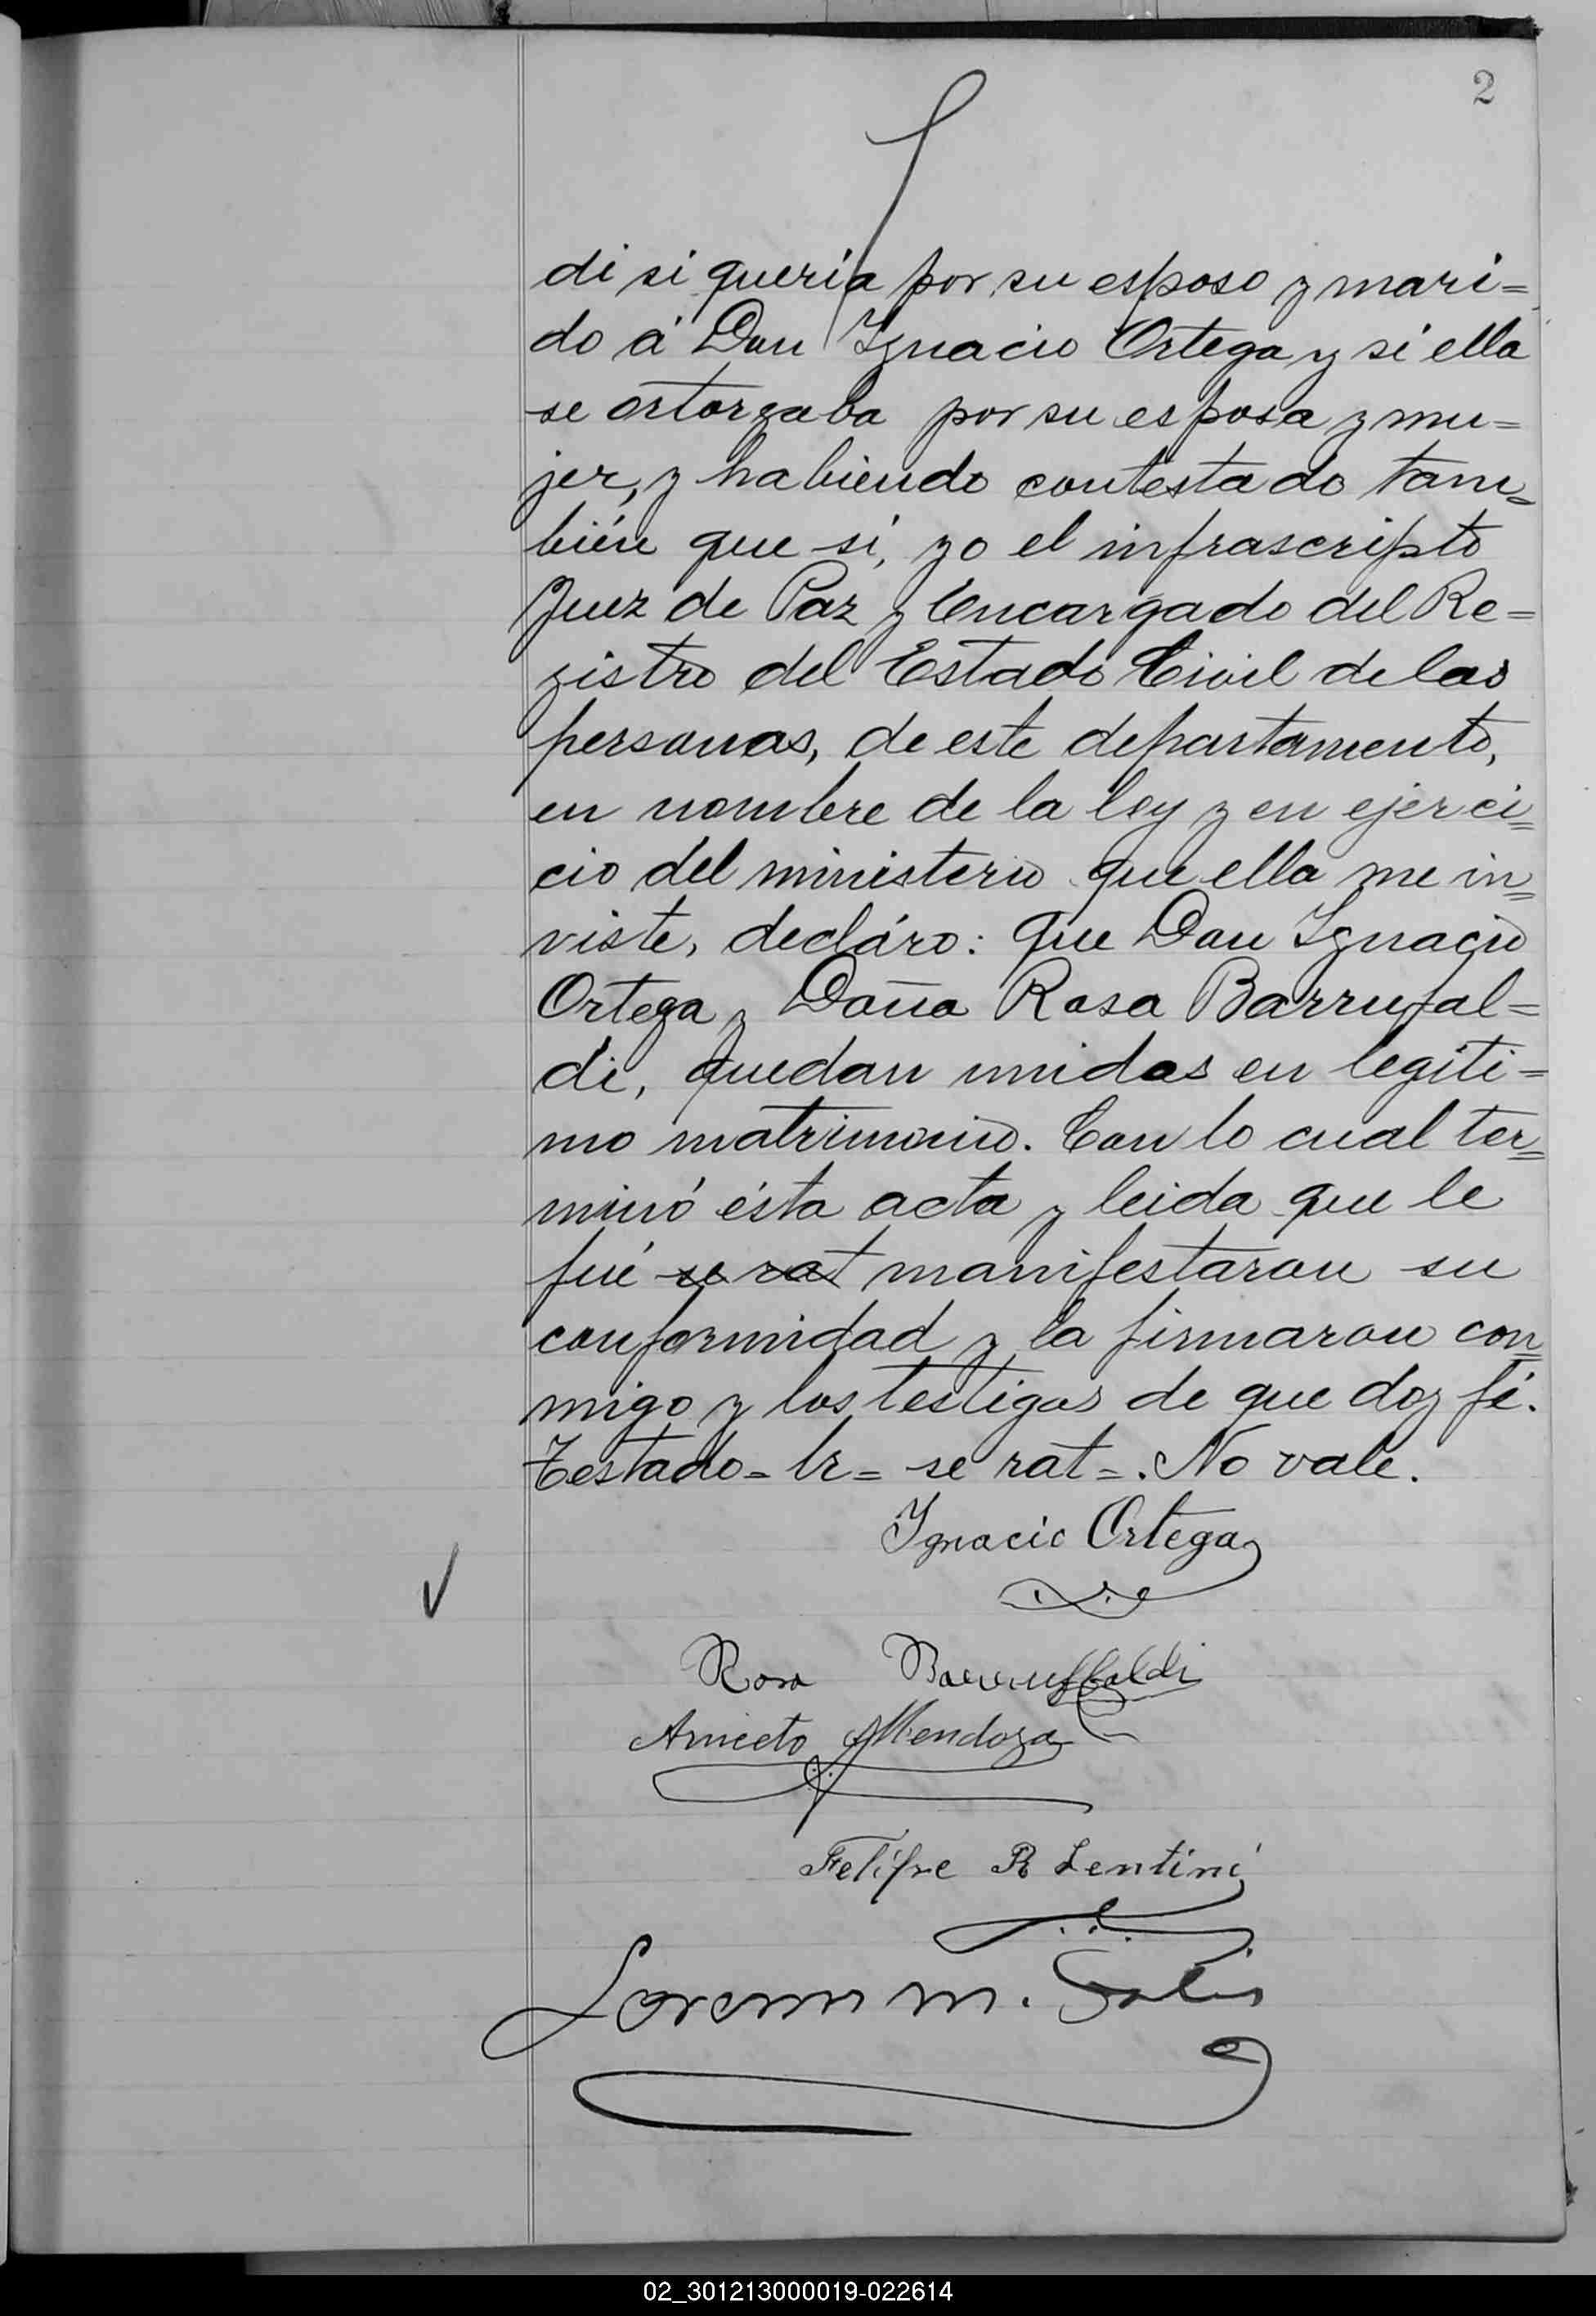 2
di si queria por su esposo y mari=
do á Don Ignacio Ortega y si ella
se ortorgaba por su esposa y mu=
jer, y habiendo contestado tam=
bién que sí, yo el infrascripto
Juez de Paz y Encargado del Re=
gistro del Estado Civil de las
personas, de este departamento,
en nombre de la ley y en ejerci=
cio del ministerio que ella me in=
viste, decláro: que Don Ignacio
Ortega y Doña Rosa Barrufal=
di, quedan unidos en legíti=
mo matrimonio. Con lo cual ter=
minó ésta acta y leida que le
fué se rat manifestaron su
conformidad y la firmaron con=
migo y los testigos de que doy fé.
Testado= se rat=. No vale.
Ignacio Ortega
Rosa Barruffaldi
Aniceto Mendoza
Felipe R Lentini
Lorenzo M. Solis
02_301213000019-022614